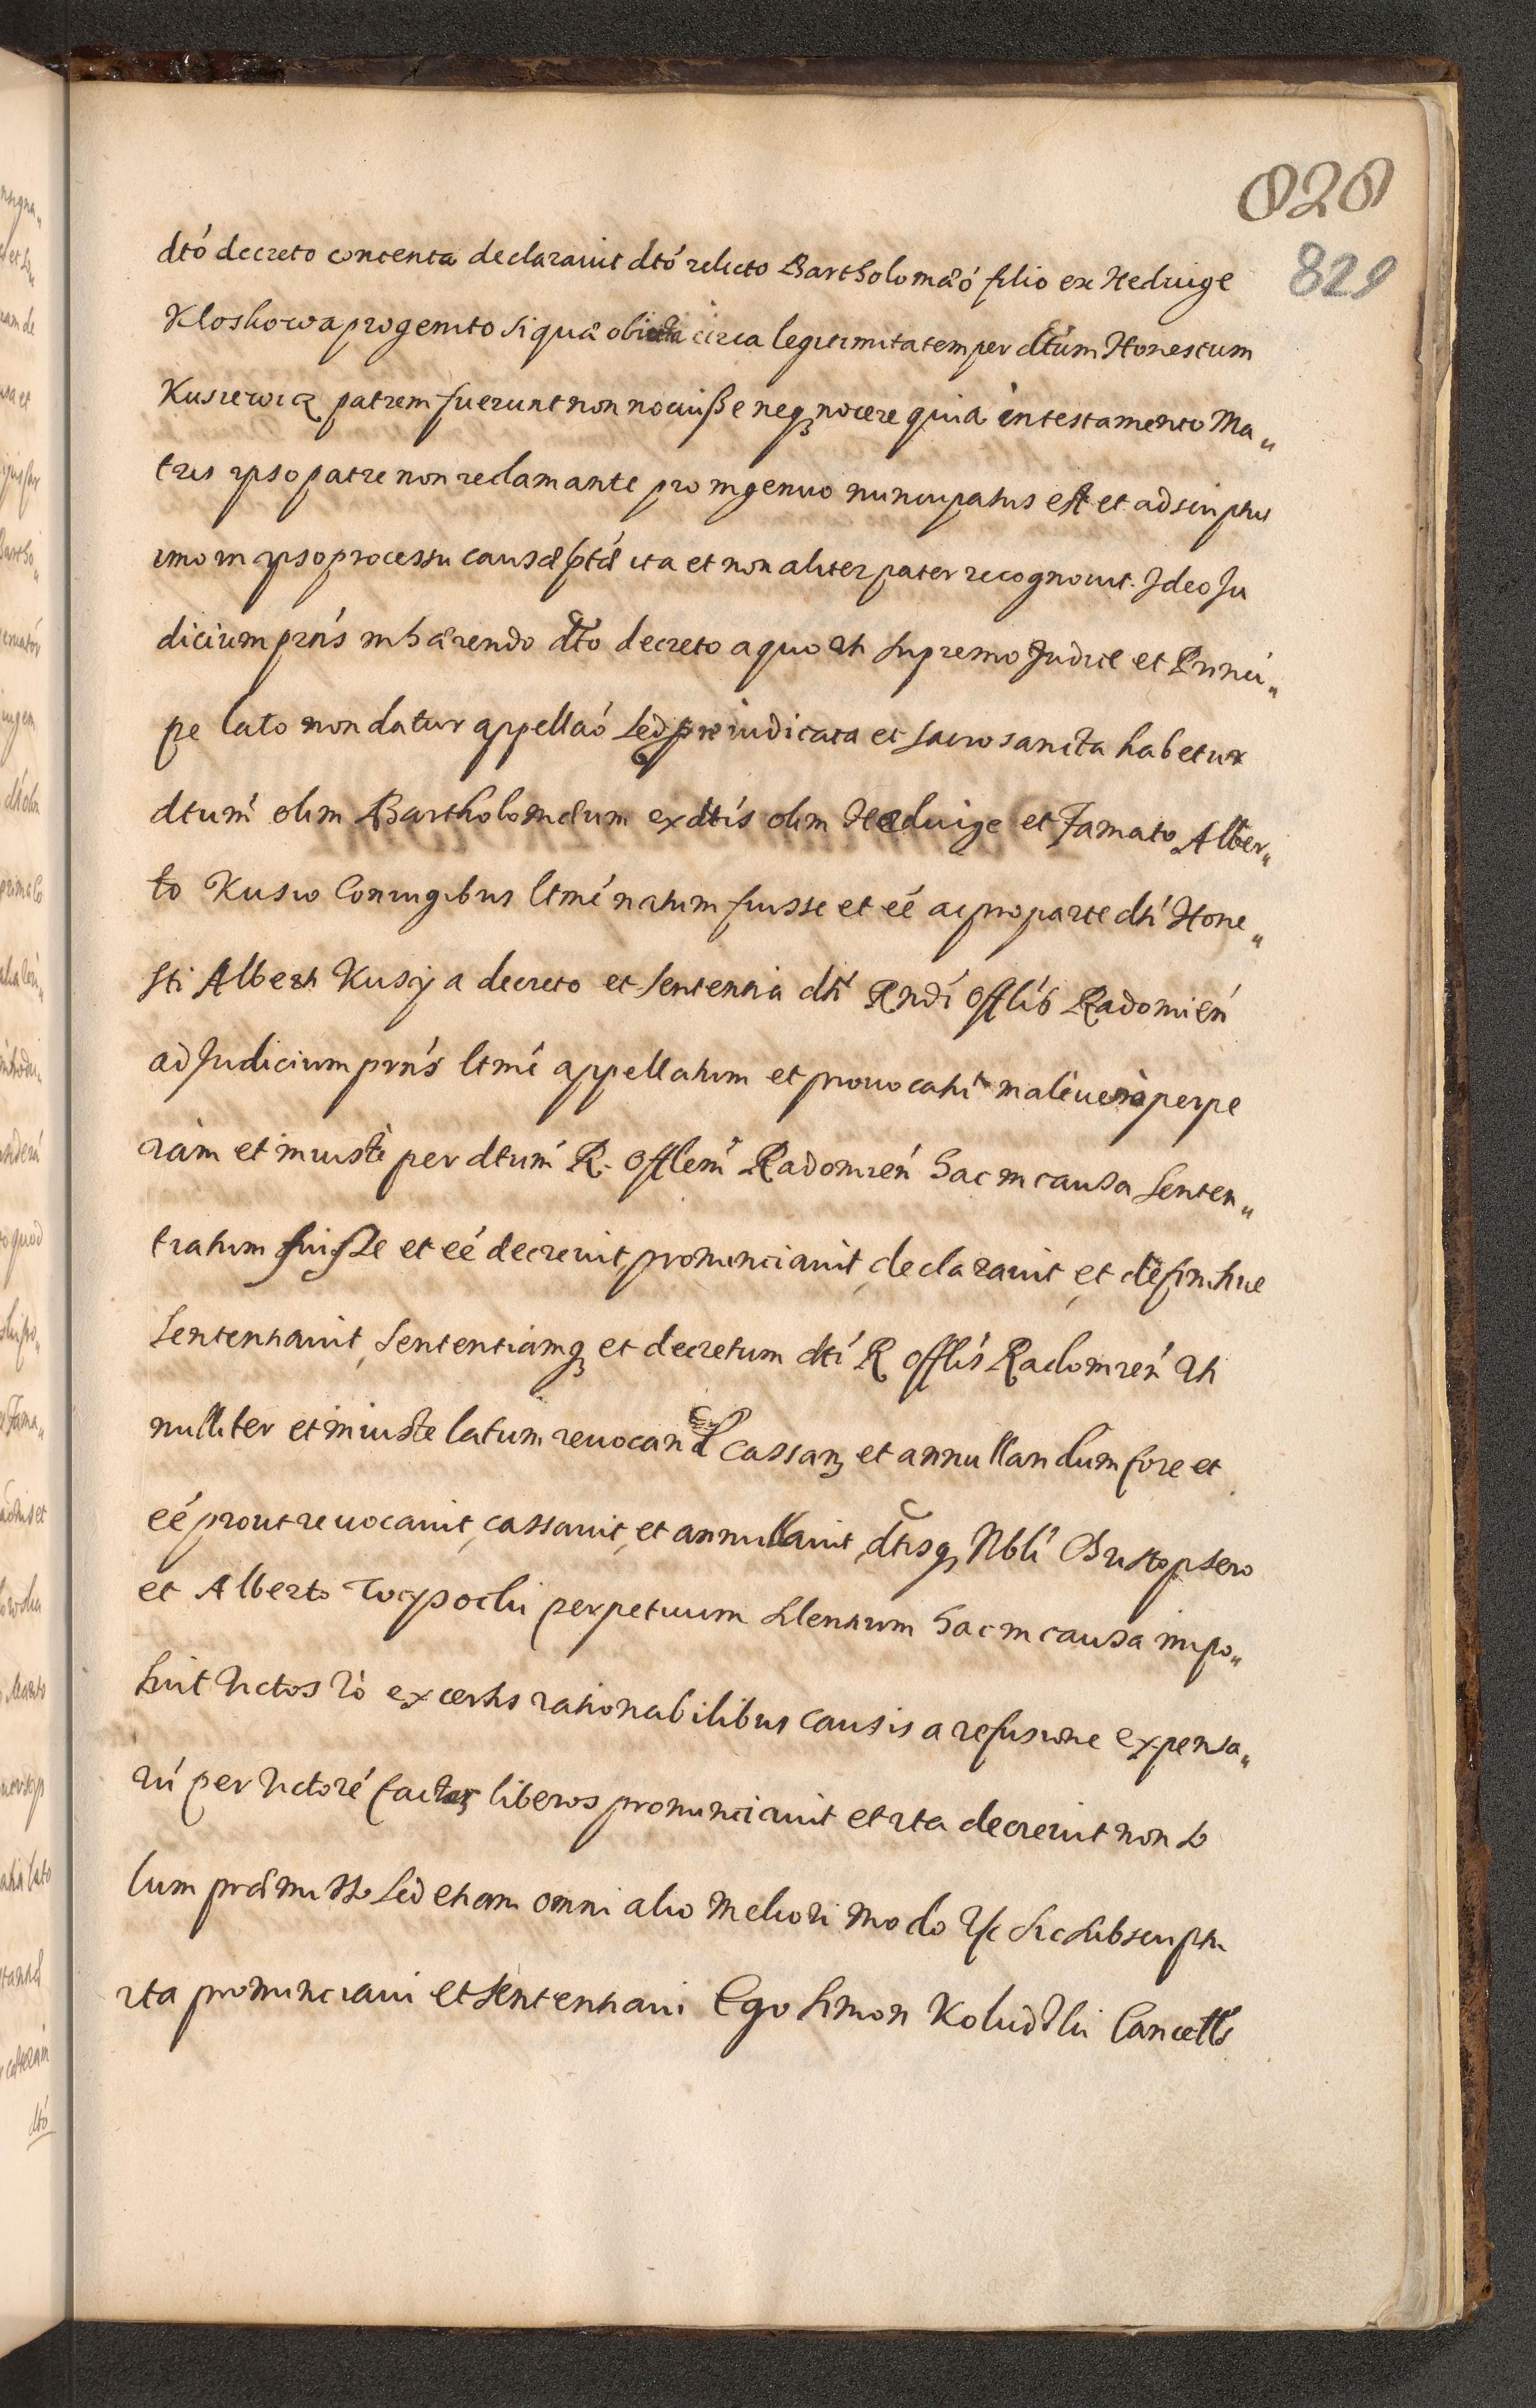 828
829
dtó decreto contenta declarauit dtó relicto Bartholomæó filio ex Heduige
Kloskowa progenito si quæ obiecta circa legitimitatem per dtúm Honestum
Kusiewicz patrem fuerunt non nocuisse neqꝫ nocere quia in testamento Ma„
tris ipso patre non reclamante pro ingenuo nuncupatus est et adscriptus
imo in ipso processu causæ ita et non aliter pater recognouit. Ideo Iu
dicium prńs inhærendo dto decreto a quo uti supremo Iudice et Princi„
pe lato non datur appellaó sed pro iudicata et sacrosancta habetur
dtum olim Bartholomæum ex dtis olim Heduige et Famato Alber„
to Kusio Coniugibus ltmé natum fuisse et eé ac pro parte dti Hone„
sti Alberti Kusij a decreto et sententia dti Rndi Offlis Radomień
ad Iudicium prńs ltmé appellatum et prouocatú male uero perpe
ram et iniuste per dtum R. Offlem Radomień hac in causa senten„
tiatum fuisse et eé decreuit, pronunciauit, declarauit, et definitiue
sententiauit, sententiamqꝫ et decretum dti R Offlis Radomień uti
nulliter et iniuste latum reuocand cassanꝫ et annullandum fore et
eé prout reuocauit, cassauit, et annullauit, dtisqꝫ Nbli
et Alberto perpetuum silentium hac in causa impo„
suit Actos ex certis rationabilibus causis a refusione expensa„
rú per Actoré factaꝝ liberos pronunciauit et ita decreuit non so
lum præmisso sed etiam omni alio meliori modo Sic subscriptu
ita pronunciaui et sententiaui Ego Simon Koludzki Cancells